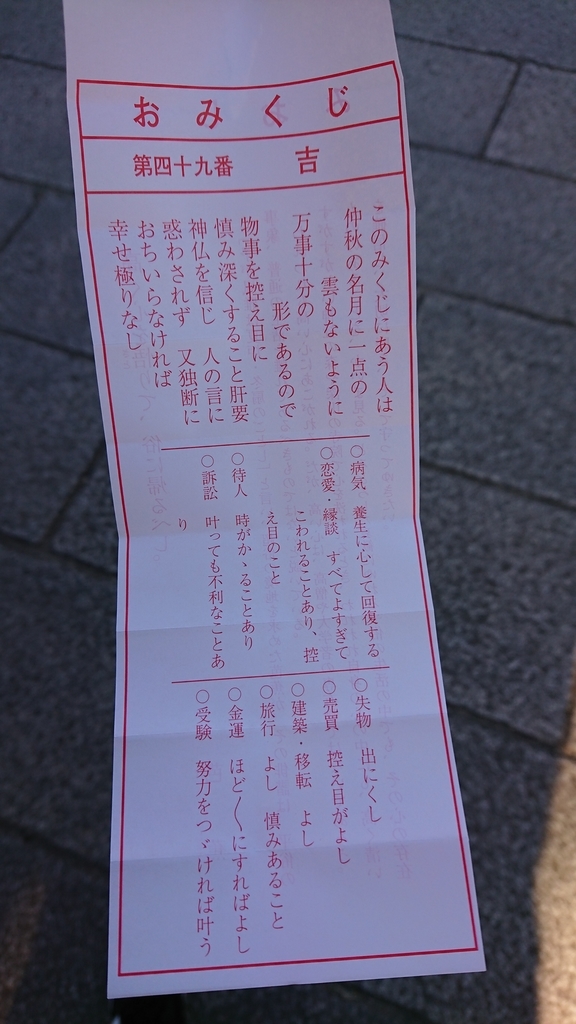 おみくじ
第四十九番　吉
このみくじにあう人は
仲秋の名月に一点の
雲もないように
万事十分の
形であるので
物事を控え目に
慎み深くすること肝要
神仏を信じ　人の言に
惑わされず　又独断に
おちいらなければ
幸せ極りなし
○病気　養生に心して回復する
○恋愛・縁談　すべてよすぎて
こわれることあり、控
え目のこと
○待人　時がかゝることあり
○訴訟　叶っても不利なことあ
り
○失物　出にくし
○売買　控え目がよし
○建築・移転　よし
○旅行　よし　慎みあること
○金運　ほど〱にすればよし
○受験　努力をつゞければ叶う